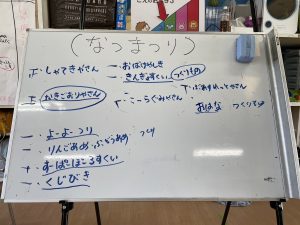 (なつまつり)
正-しゃてきやさん
一-おばけやしき
一-きんぎょすくい つくりもの
正 かきごおりやさん
T-ぷあまぁっとやさん
T-こーらぐみやさん
おはな つくりもの
一-よーよーつり つくり
一-りんごあめ・ぶどうあめ
+-すーぱーぼーるすくい
一-くじびき